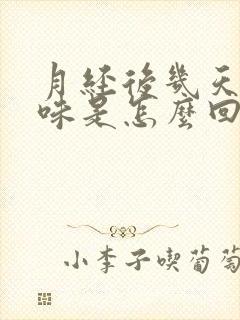 月經後幾天
味是怎麼回
小李子喫葡萄